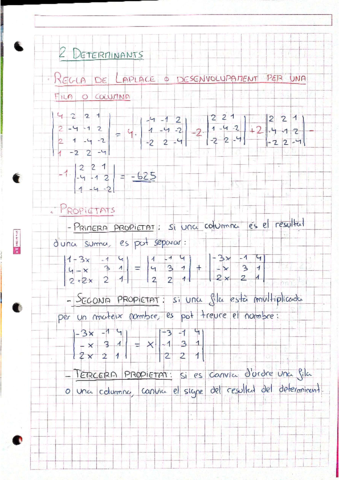 2 DETERMINANTS
REGLA DE LAPLACE O DESENVOLUPAMENT PER UNA
FILA O COLUMNA
|4 2 2 1; 2 -4 -1 2; 2 1 -4 -2; 1 -2 2 -4| = 4· |-4 -1 2; 1 -4 -2; -2 2 -4| -2· |2 2 1; 1 -4 -2; -2 2 -4| +2 |2 2 1; -4 -1 2; -2 2 -4| -
-1 |2 2 1; -4 -1 2; 1 -4 -2| = -625
PROPIETATS
- PRIMERA PROPIETAT: si una columna és el resultat
d'una suma, es pot separar:
|1-3x -1 4; 4-x 3 1; 2+2x 2 1| = |1 -1 4; 4 3 1; 2 2 1| + |-3x -1 4; -x 3 1; 2x 2 1|
- SEGONA PROPIETAT: si una fila està multiplicada
per un mateix nombre, es pot treure el nombre:
|-3x -1 4; -x 3 1; 2x 2 1| = x |-3 -1 4; -1 3 1; 2 2 1|
- TERCERA PROPIETAT: si es canvia d'ordre una fila
o una columna, canvia el signe del resultat del determinant.